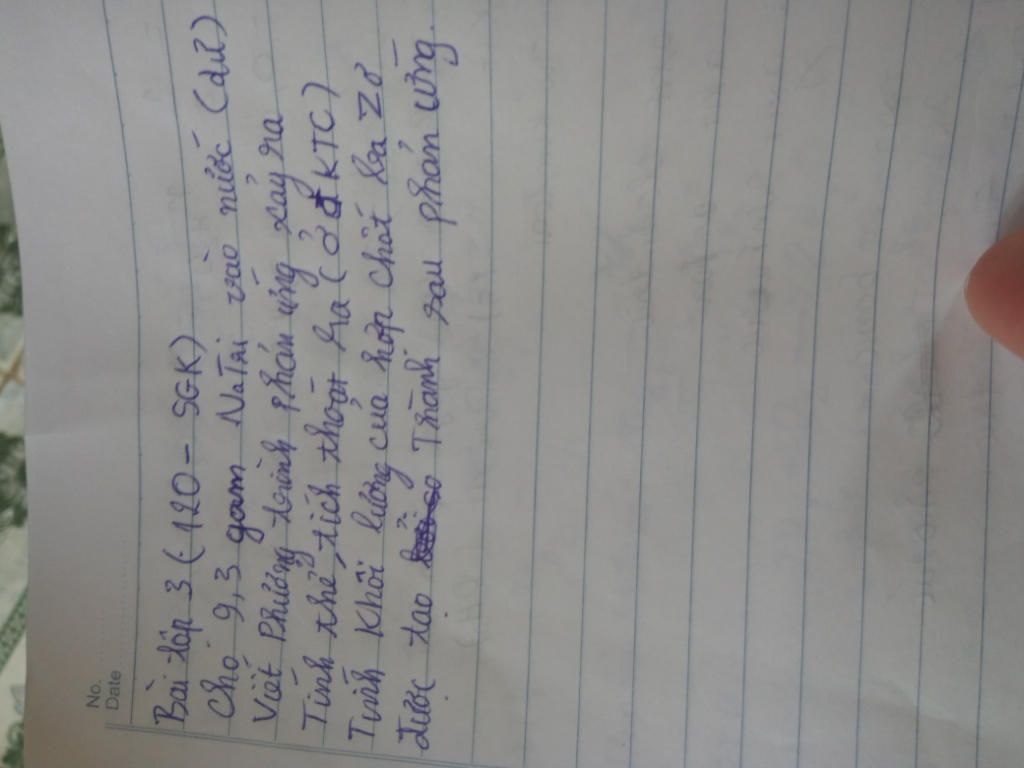 No.
Date
Bài tập 3 (120 - SGK)
Cho 9,3 gam Natri vào nước (dư)
Viết Phương trình phản ứng xảy ra
Tính thể tích thoát ra (ở đKTC)
Tính Khối lượng của hợp chất bazơ
được tạo Thành sau phản ứng.